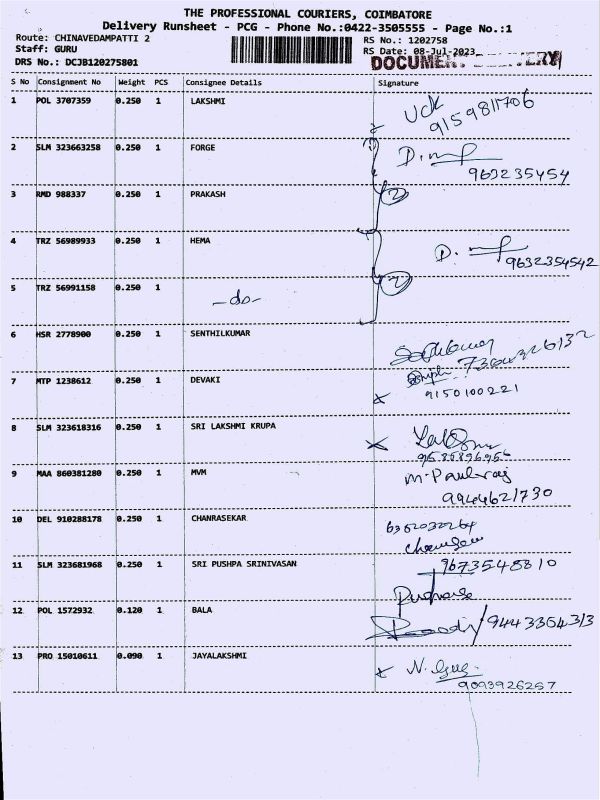 THE PROFESSIONAL COURIERS, COIMBATORE
Delivery Runsheet - PCG - Phone No.:0422-3505555 - Page No.:1
Route: CHINAVEDAMPATTI 2 RS No.: 1202758
Staff: GURU RS Date: 08-Jul-2023
DRS No.: DCJB120275801 DOCUMENT
S No Consignment No Weight PCS Consignee Details Signature
1 POL 3707359 0.250 1 LAKSHMI
2 SLM 323663258 0.250 1 FORGE
963235454
3 RMD 988337 0.250 1 PRAKASH (2)
4 TRZ 56989933 0.250 1 HEMA
9632354542
5 TRZ 56991158 0.250 1 -do- (2)
6 HSR 2778900 0.250 1 SENTHILKUMAR
7 MTP 1238612 0.250 1 DEVAKI
9150100221
8 SLM 323618316 0.250 1 SRI LAKSHMI KRUPA
9 MAA 860381280 0.250 1 MVM M. Paulraj
9944621730
10 DEL 910288178 0.250 1 CHANRASEKAR
11 SLM 323681968 0.250 1 SRI PUSHPA SRINIVASAN 9673548810
12 POL 1572932 0.120 1 BALA 9443364313
13 PRO 15010611 0.090 1 JAYALAKSHMI
9093926257